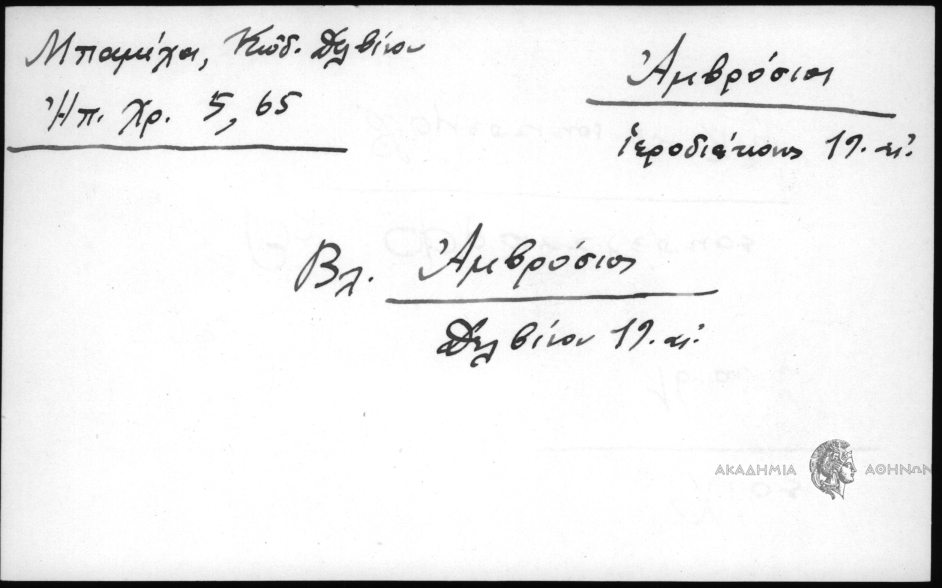 Μπαμίχα, Κώδ. Δελβίνου
Ἠπ. Χρ. 5, 65
Ἀμβρόσιος
ἱεροδιάκονος 19. αἰ.
Βλ. Ἀμβρόσιος
Δελβίνου 19. αἰ.
ΑΚΑΔΗΜΙΑ ΑΘΗΝΩΝ